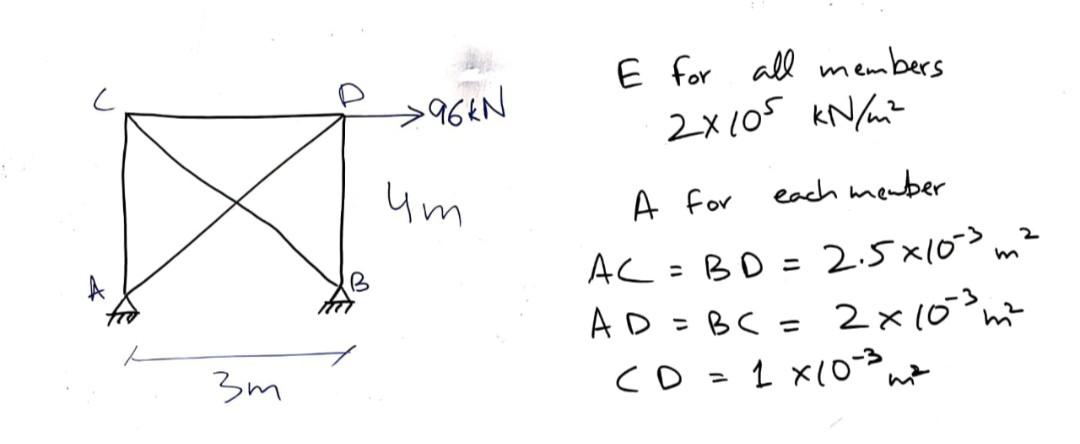 C
D
96kN
4m
A
B
3m
E for all members
2×10⁵ kN/m²
A for each member
AC = BD = 2.5×10⁻³ m²
AD = BC = 2×10⁻³ m²
CD = 1 ×10⁻³ m²